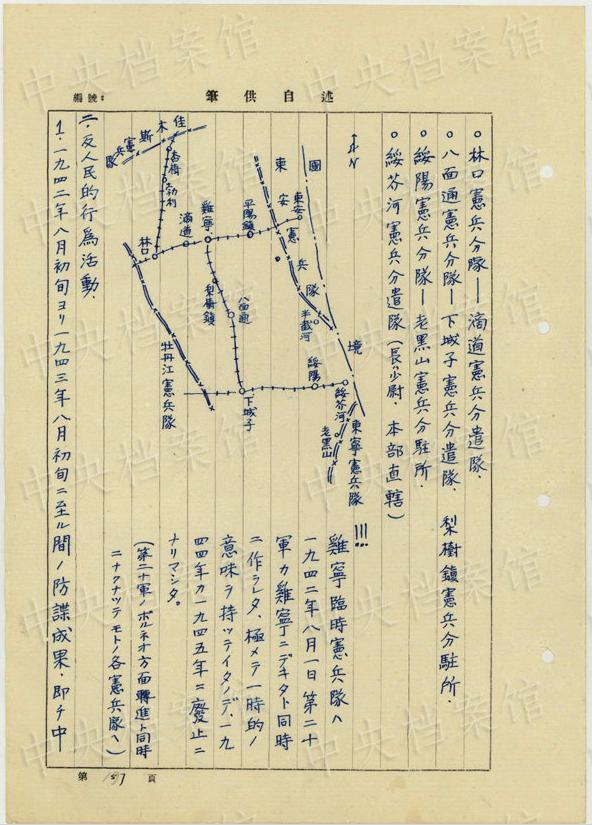 編號：
述自供筆
○林口憲兵分隊——滴道憲兵分遣隊．
○八面通憲兵分隊——下城子憲兵分遣隊．　梨樹鎮憲兵分駐所．
○綏陽憲兵分隊——老黒山憲兵分駐所．
○綏芬河憲兵分遣隊（長ハ少尉．本部直轄）
N
國境
東安憲兵隊
東安
佳木斯憲兵隊
杏樹
勃利
林口
滴道
雞寧
平陽鎮
半截河
梨樹鎮
八面通
下城子
綏陽
綏芬河
老黒山
東寧憲兵隊
牡丹江憲兵隊
!!!
雞寧臨時憲兵隊ハ
一九四二年八月一日第二十
軍カ雞寧ニデキタト同時
ニ作ラレタ、極メテ一時的ノ
意味ヲ持ツテイタノデ、一九
四四年カ一九四五年ニ廢止ニ
ナリマシタ。
（第二十軍ノボルネオ方面轉進ト同時
ニナクナツテモトノ各憲兵隊ヘ）
二．反人民的行為活動．
1．一九四二年八月初旬ヨリ一九四三年八月初旬ニ至ル間ノ防諜成果．即チ中
第 頁
中央档案馆